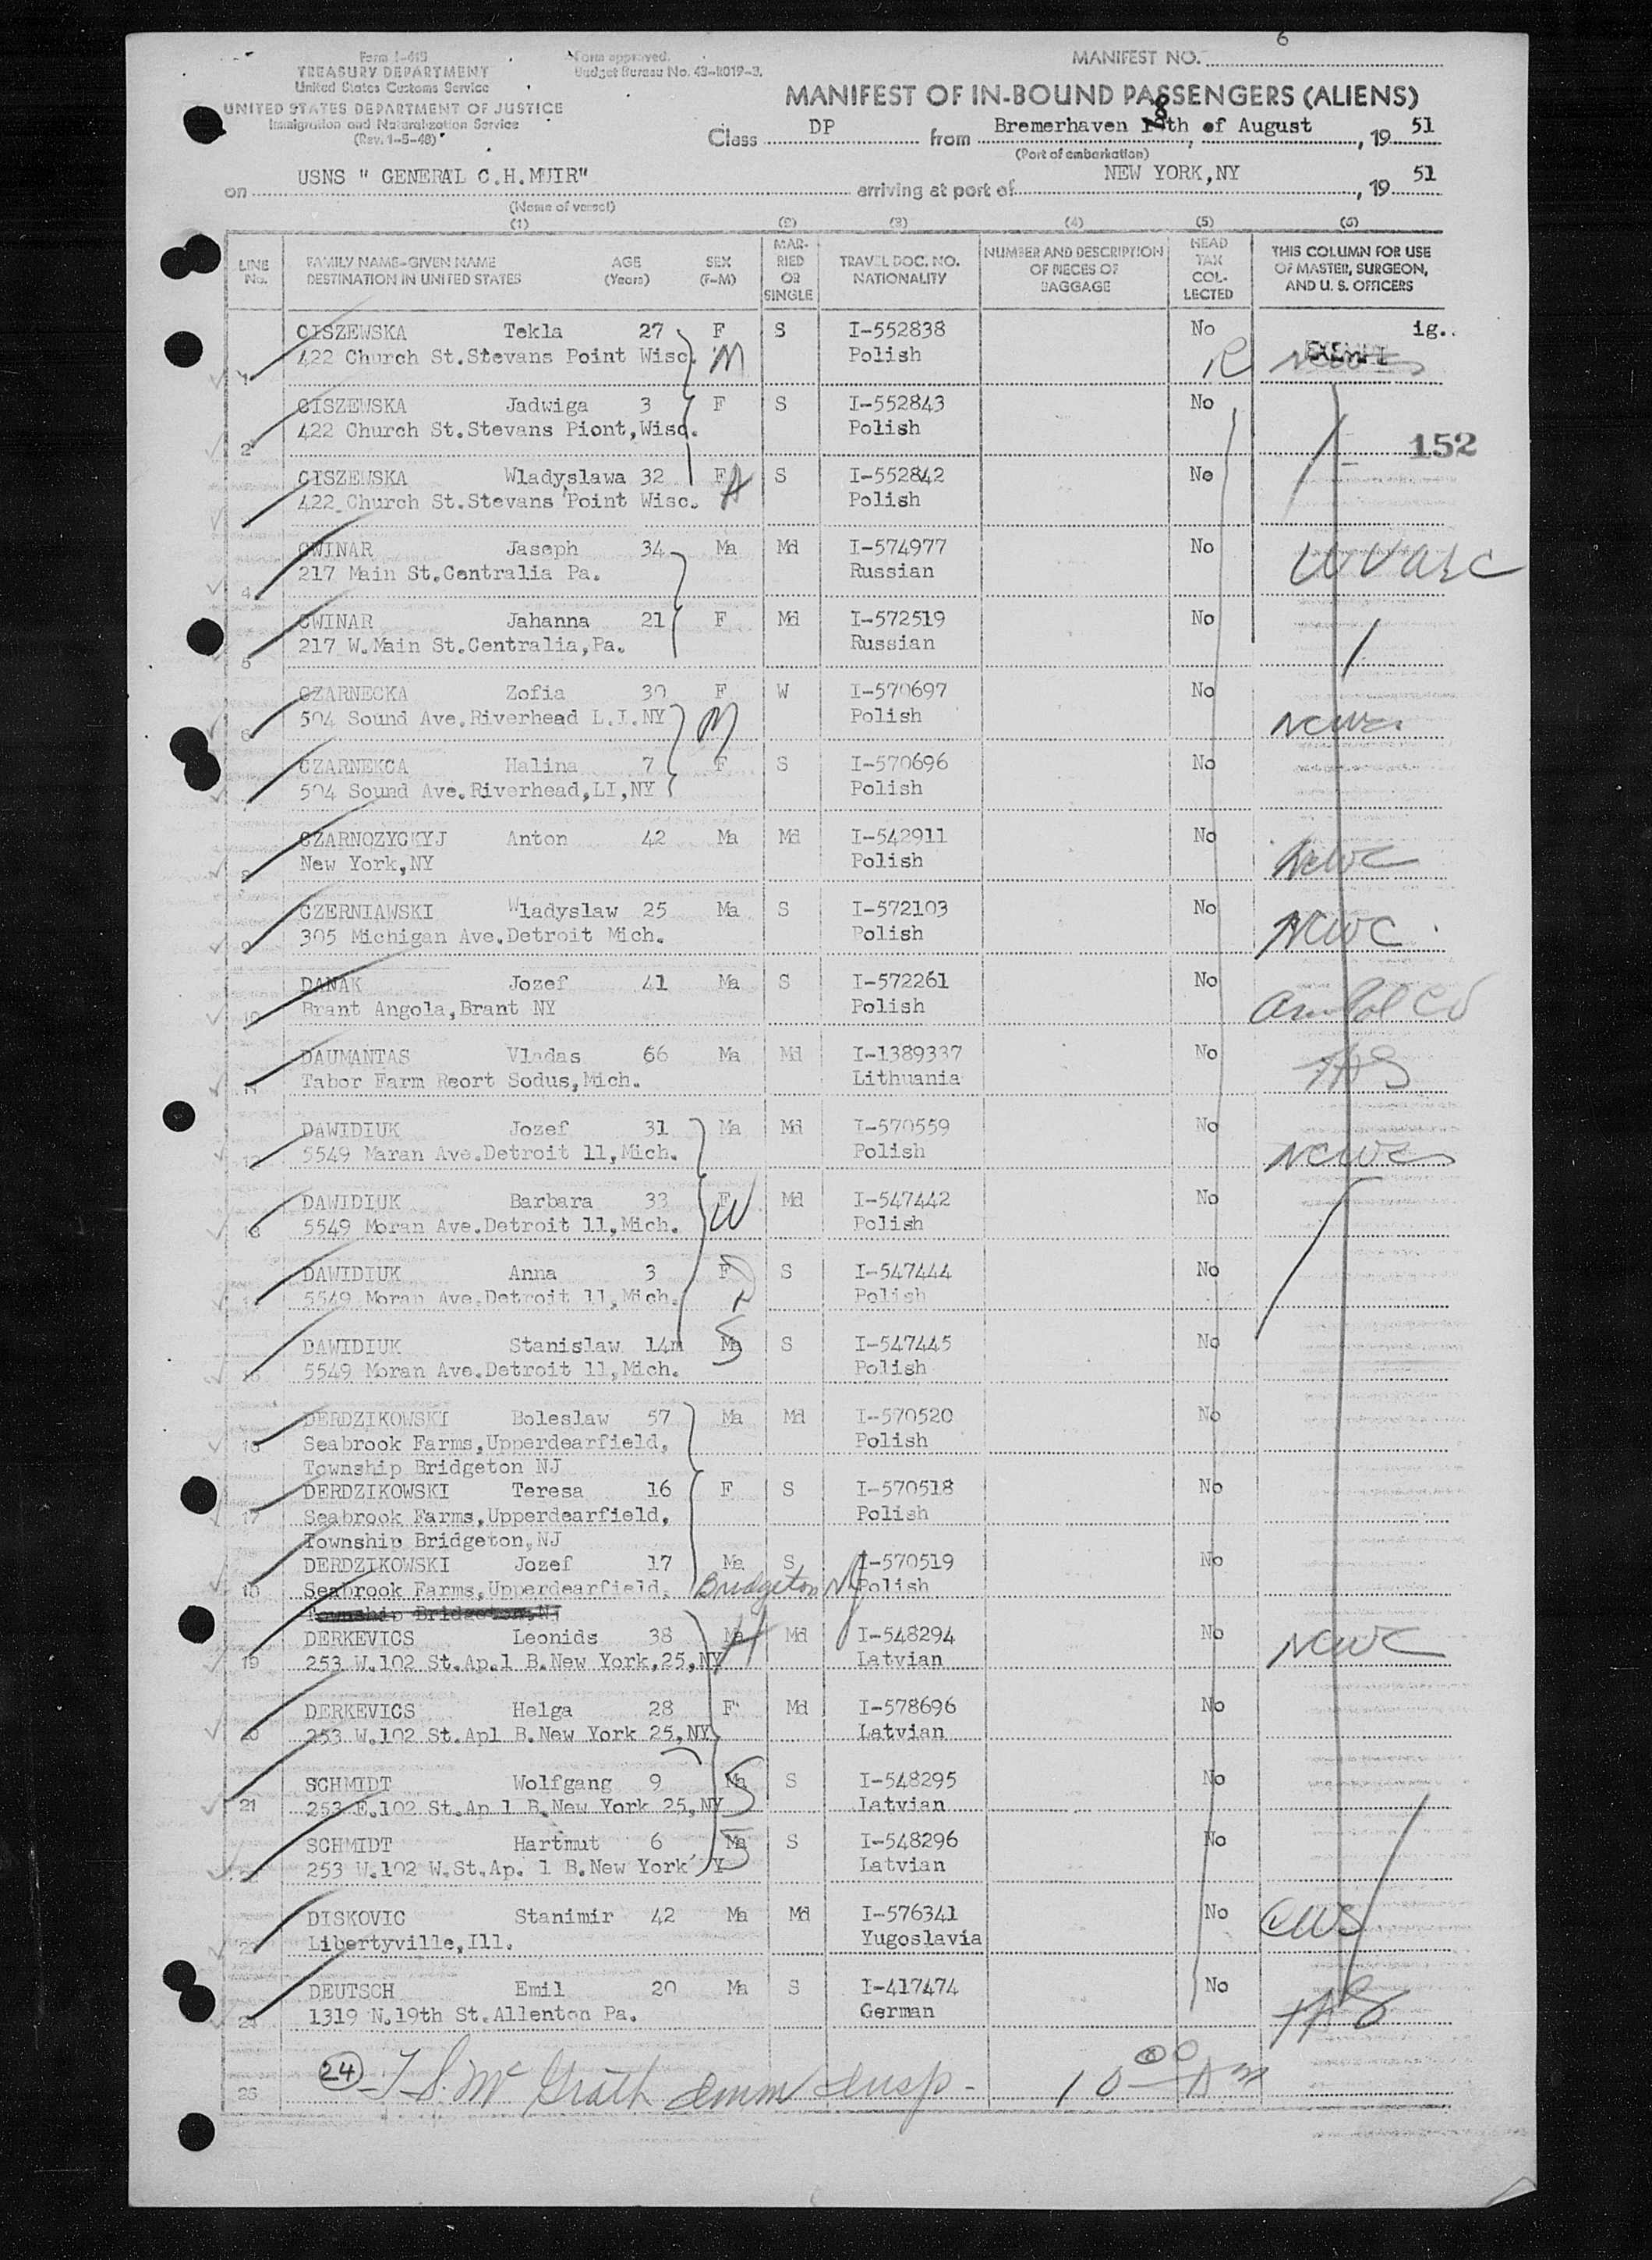 6
Form I-415
TREASURY DEPARTMENT
United States Customs Service
UNITED STATES DEPARTMENT OF JUSTICE
Immigration and Naturalization Service
(Rev. 1-5-48)
Form approved.
Budget Bureau No. 43-R019-3.
MANIFEST NO.
MANIFEST OF IN-BOUND PASSENGERS (ALIENS)
Class DP from Bremerhaven 18th of August, 19 51
(Port of embarkation)
on USNS " GENERAL C.H.MUIR" arriving at port of NEW YORK,NY, 19 51
(Name of vessel)
(1) (2) (3) (4) (5) (6)
LINE No. FAMILY NAME-GIVEN NAME DESTINATION IN UNITED STATES AGE (Years) SEX (F-M) MARRIED OR SINGLE TRAVEL DOC. NO. NATIONALITY NUMBER AND DESCRIPTION OF PIECES OF BAGGAGE HEAD TAX COLLECTED THIS COLUMN FOR USE OF MASTER, SURGEON, AND U. S. OFFICERS
1 CISZEWSKA Tekla 27 F S I-552838 No ig..
422 Church St.Stevans Point Wisc. M Polish R EXEMPT
2 CISZEWSKA Jadwiga 3 F S I-552843 No
422 Church St.Stevans Piont,Wisc. Polish 152
CISZEWSKA Wladyslawa 32 F S I-552842 No
422 Church St.Stevans Point Wisc. A Polish
4 CWINAR Jaseph 34 Ma Md I-574977 No
217 Main St.Centralia Pa. Russian
5 CWINAR Jahanna 21 F Md I-572519 No
217 W.Main St.Centralia,Pa. Russian
6 CZARNECKA Zofia 30 F W I-570697 No
504 Sound Ave.Riverhead L.I.NY M Polish NCWC
7 CZARNEKCA Halina 7 F S I-570696 No
504 Sound Ave.Riverhead,LI,NY Polish
8 CZARNOZYCKYJ Anton 42 Ma Md I-542911 No
New York,NY Polish NCWC
9 CZERNIAWSKI Wladyslaw 25 Ma S I-572103 No
305 Michigan Ave.Detroit Mich. Polish NCWC
10 DANAK Jozef 41 Ma S I-572261 No
Brant Angola,Brant NY Polish
11 DAUMANTAS Vladas 66 Ma Md I-1389337 No
Tabor Farm Reort Sodus,Mich. Lithuania
12 DAWIDIUK Jozef 31 Ma Md I-570559 No
5549 Maran Ave.Detroit 11,Mich. Polish NCWC
13 DAWIDIUK Barbara 33 F Md I-547442 No
5549 Moran Ave.Detroit 11,Mich. W Polish
14 DAWIDIUK Anna 3 F S I-547444 No
5549 Moran Ave.Detroit 11,Mich. Polish
15 DAWIDIUK Stanislaw 14m Ma S I-547445 No
5549 Moran Ave.Detroit 11,Mich. Polish
16 DERDZIKOWSKI Boleslaw 57 Ma Md I-570520 No
Seabrook Farms,Upperdearfield, Polish
Township Bridgeton NJ
DERDZIKOWSKI Teresa 16 F S I-570518 No
17 Seabrook Farms,Upperdearfield, Polish
Township Bridgeton,NJ
DERDZIKOWSKI Jozef 17 Ma S I-570519 No
18 Seabrook Farms,Upperdearfield, Bridgeton NJ Polish
Township Bridgeton,NJ
DERKEVICS Leonids 38 Ma Md I-548294 No
19 253 W.102 St.Ap.1 B.New York,25,NY H Latvian NCWC
DERKEVICS Helga 28 F Md I-578696 No
20 253 W.102 St.Apl B.New York 25,NY Latvian
SCHMIDT Wolfgang 9 Ma S I-548295 No
21 253 E.102 St.Ap 1 B.New York 25,NY S Latvian
SCHMIDT Hartmut 6 Ma S I-548296 No
253 W.102 W.St.Ap. 1 B.New York Y S Latvian
DISKOVIC Stanimir 42 Ma Md I-576341 No
Libertyville,Ill. Yugoslavia CWS
DEUTSCH Emil 20 Ma S I-417474 No
24 1319 N.19th St.Allenton Pa. German
25 24 T.S. McGrath Imm Insp - 10 00 AM